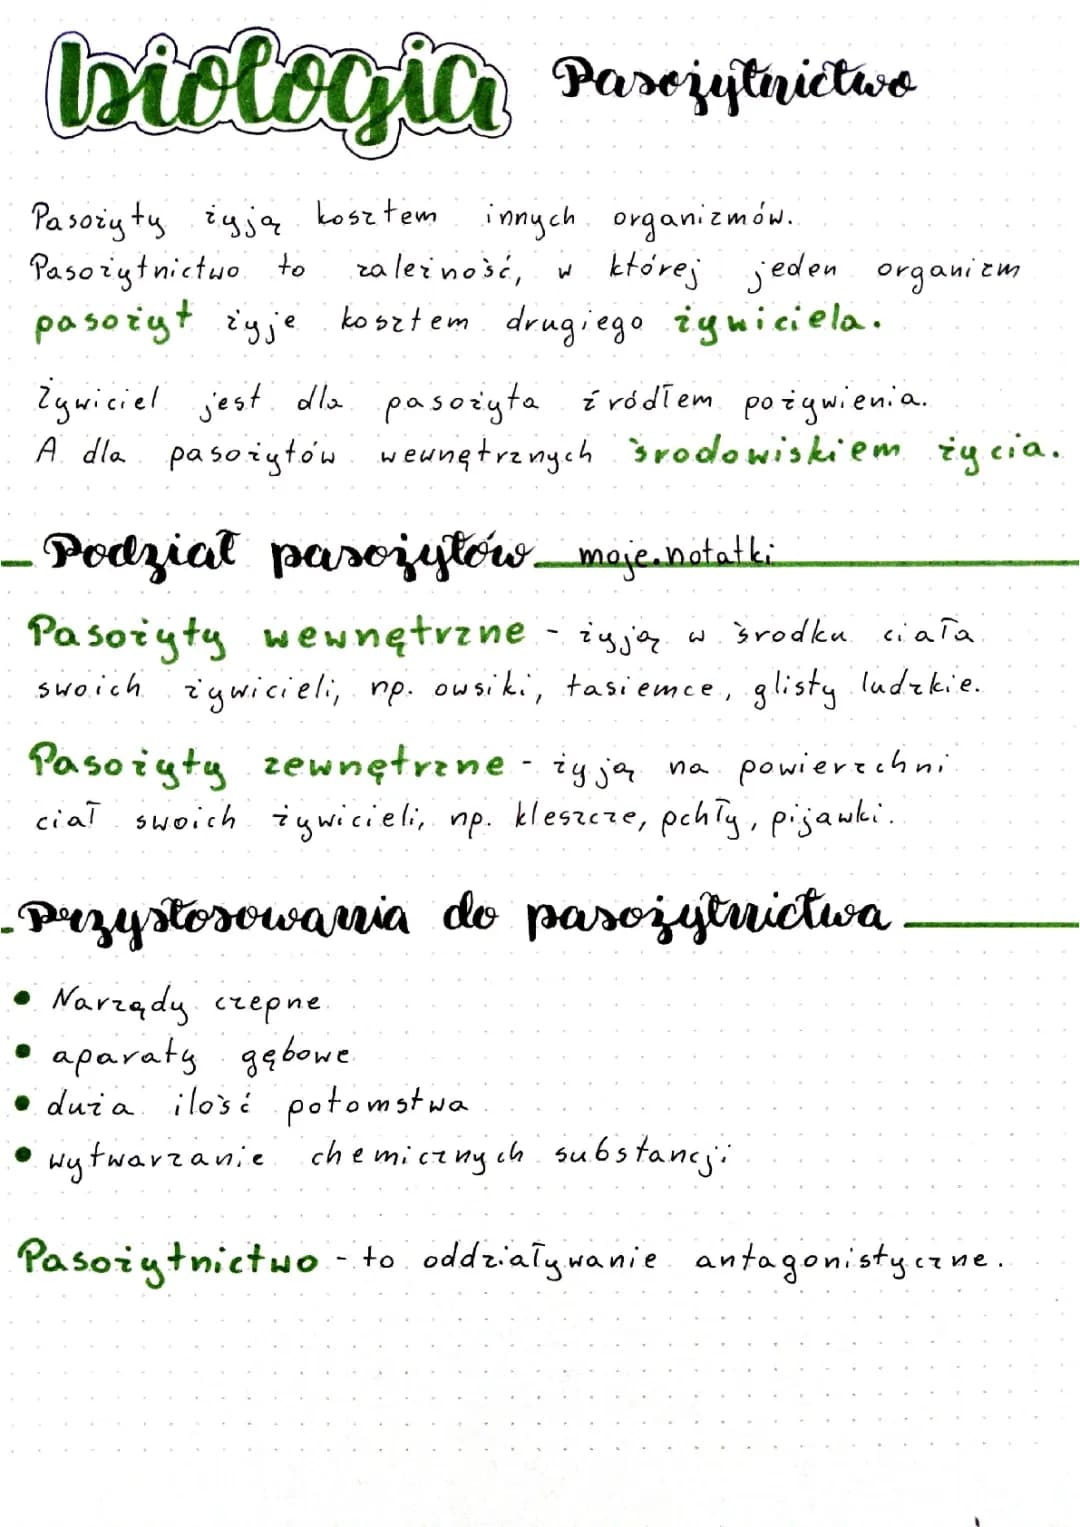 biologia Pasożytnictwo
Pasożyty żyją kosztem innych organizmów.
Pasożytnictwo to zależność, w której jeden organizm
pasożyt żyje kosztem drugiego żywiciela.
Żywiciel jest dla pasożyta źródłem pożywienia.
A dla pasożytów wewnętrznych środowiskiem życia.
Podział pasożytów moje.notatki
Pasożyty wewnętrzne - żyją w środku ciała
swoich żywicieli, np. owsiki, tasiemce, glisty ludzkie.
Pasożyty zewnętrzne - żyją na powierzchni
ciał swoich żywicieli, np. kleszcze, pchły, pijawki.
Przystosowania do pasożytnictwa
• Narządy czepne
• aparaty gębowe
• duża ilość potomstwa
• wytwarzanie chemicznych substancji
Pasożytnictwo - to oddziaływanie antagonistyczne.